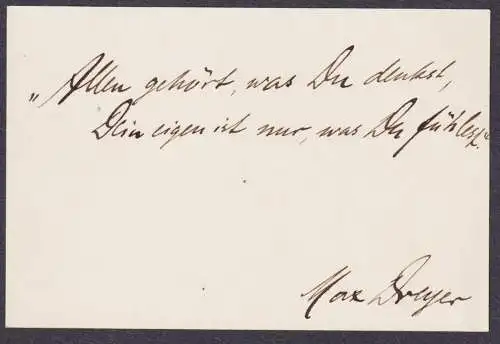 „Allen gehört, was Du denkst,
Dein eigen ist nur, was Du fühlest.“
Max Dreyer